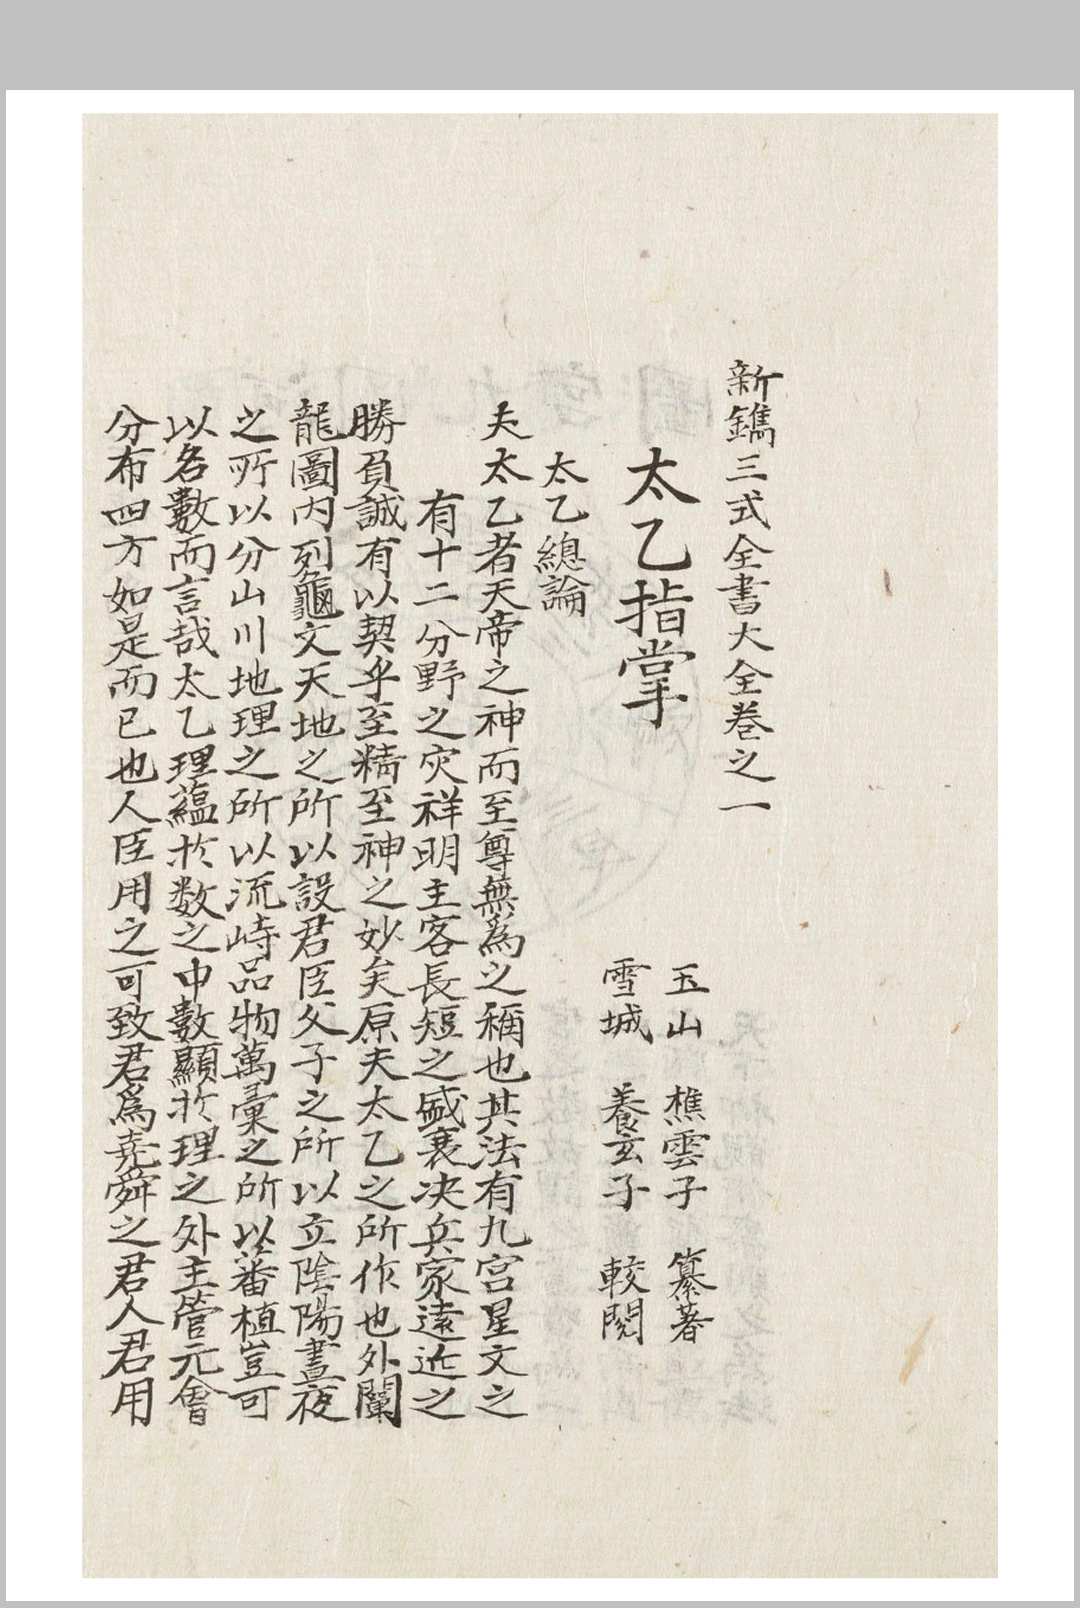 新鐫三式全書大全卷之一
玉山　樵雲子　纂著
太乙指掌
雪城　養玄子　較閱
太乙總論
夫太乙者天帝之神而至尊無為之稱也其法有九宮星文之
有十二分野之灾祥明主客長短之盛衰决兵家遠近之
勝負誠有以契乎至精至神之妙矣原夫太乙之所作也外闡
龍圖内列龜文天地之所以設君臣父子之所以立陰陽晝夜
之所以分山川地理之所以流峙品物萬彙之所以蕃植豈可
以名數而言哉太乙理蘊於数之中數顯於理之外主管元會
分布四方如是而已也人臣用之可致君為堯舜之君人君用